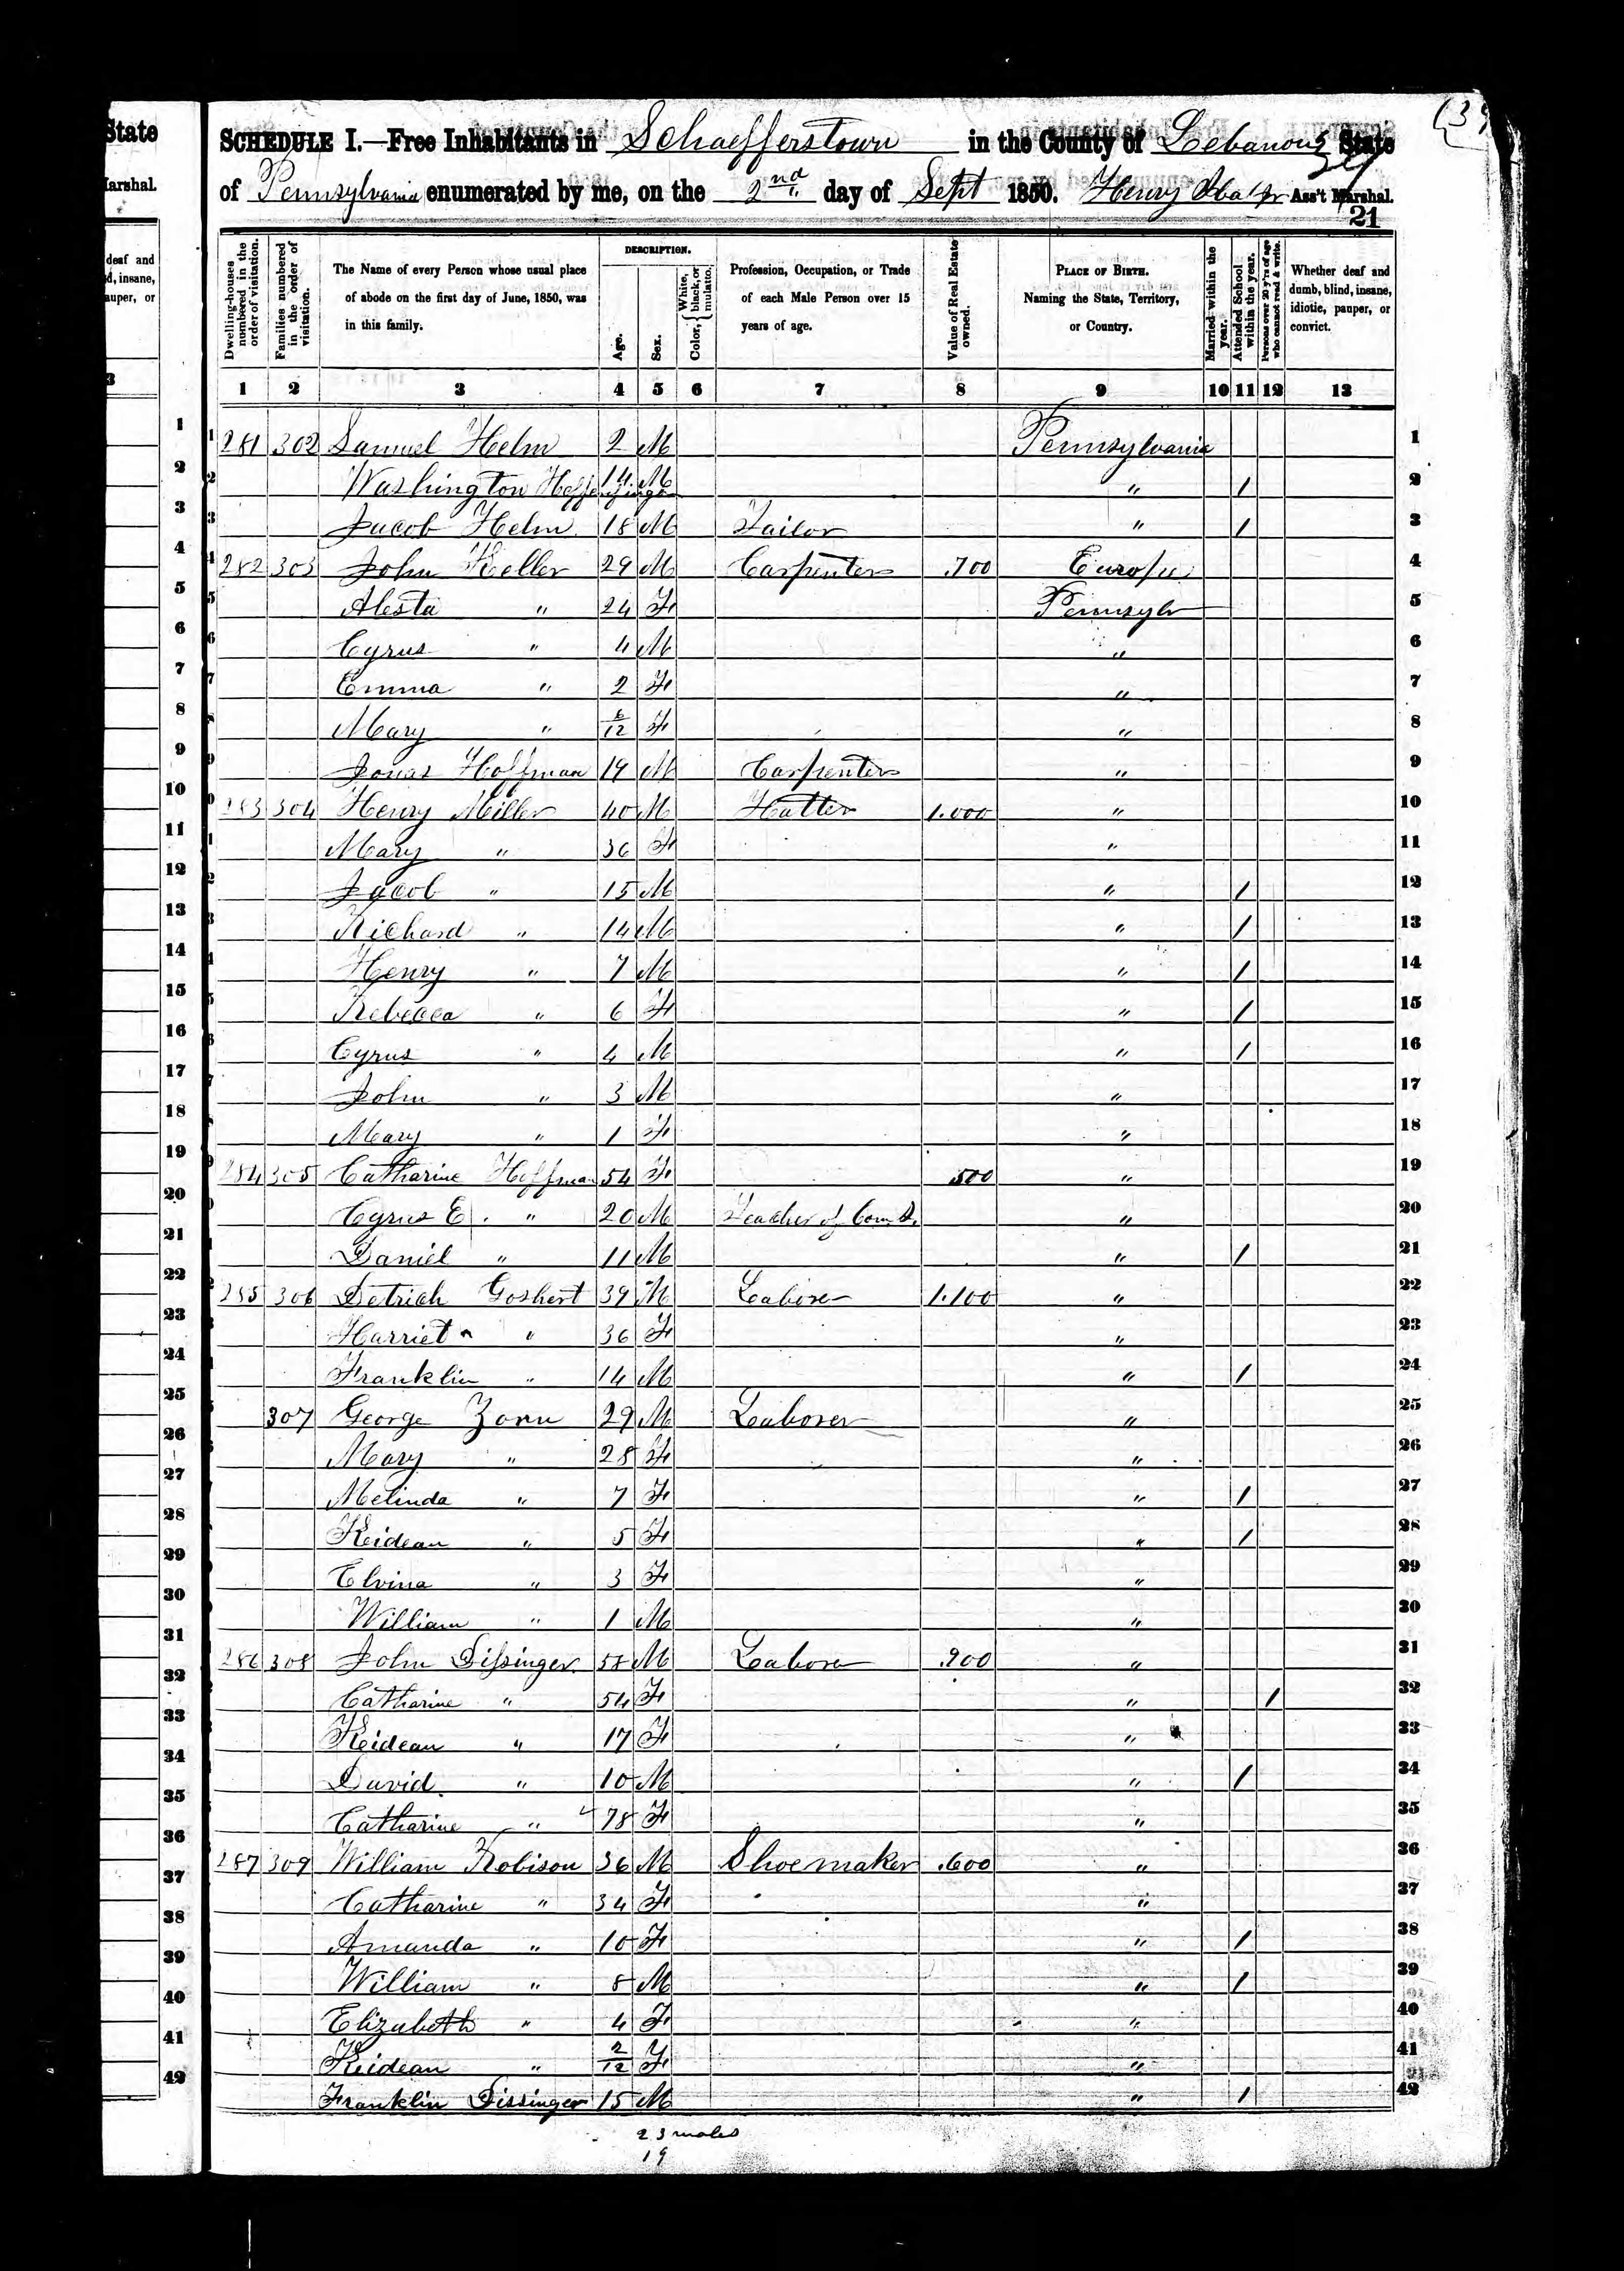 State
Marshal.
deaf and
d, insane,
auper, or
3
SCHEDULE I.—Free Inhabitants in Schaefferstown in the County of Lebanon State
of Pennsylvania enumerated by me, on the 2nd day of Sept 1850. Henry Ass't Marshal.
21
Dwelling-houses numbered in the order of visitation.
Families numbered in the order of visitation.
The Name of every Person whose usual place of abode on the first day of June, 1850, was in this family.
DESCRIPTION.
Age.
Sex.
Color, { White, black, or mulatto.
Profession, Occupation, or Trade of each Male Person over 15 years of age.
Value of Real Estate owned.
PLACE OF BIRTH. Naming the State, Territory, or Country.
Married within the year.
Attended School within the year.
Persons over 20 y'rs of age who cannot read & write.
Whether deaf and dumb, blind, insane, idiotic, pauper, or convict.
1 2 3 4 5 6 7 8 9 10 11 12 13
1 281 302 Samuel Helm 2 M Pennsylvania 1
2 Washington 14 M " / 2
3 Jacob Helm 18 M Tailor " / 3
4 282 303 John Heller 29 M Carpenter .700 Europe 4
5 Alesta " 24 F Pennsylv 5
6 Cyrus " 4 M " 6
7 Emma " 2 F " 7
8 Mary " 6/12 F " 8
9 Jonas Hoffman 19 M Carpenter " 9
10 283 304 Henry Miller 40 M Hatter 1.000 " 10
11 Mary " 36 F " 11
12 Jacob " 15 M " / 12
13 Richard " 14 M " / 13
14 Henry " 7 M " / 14
15 Rebecca " 6 F " / 15
16 Cyrus " 4 M " / 16
17 John " 3 M " 17
18 Mary " 1 F " 18
19 284 305 Catharine Hoffman 54 F .500 " 19
20 Cyrus E. " 20 M Teacher of Com S. " 20
21 Daniel " 11 M " / 21
22 285 306 Detrich Goshert 39 M Laborer 1.100 " 22
23 Harriet " 36 F " 23
24 Franklin " 14 M " / 24
25 307 George Zorn 29 M Laborer " 25
26 Mary " 28 F " 26
27 Melinda " 7 F " / 27
28 Keidean " 5 F " / 28
29 Elvina " 3 F " 29
30 William " 1 M " 30
31 286 308 John Dissinger 58 M Laborer .900 " 31
32 Catharine " 54 F " / 32
33 Keidean " 17 F " 33
34 David " 10 M " / 34
35 Catharine " 78 F " 35
36 287 309 William Robison 36 M Shoemaker .600 " 36
37 Catharine " 34 F " 37
38 Amanda " 10 F " / 38
39 William " 8 M " / 39
40 Elizabeth " 4 F " 40
41 Keidean " 2/12 F " 41
42 Franklin Dissinger 15 M " / 42
23 males
19